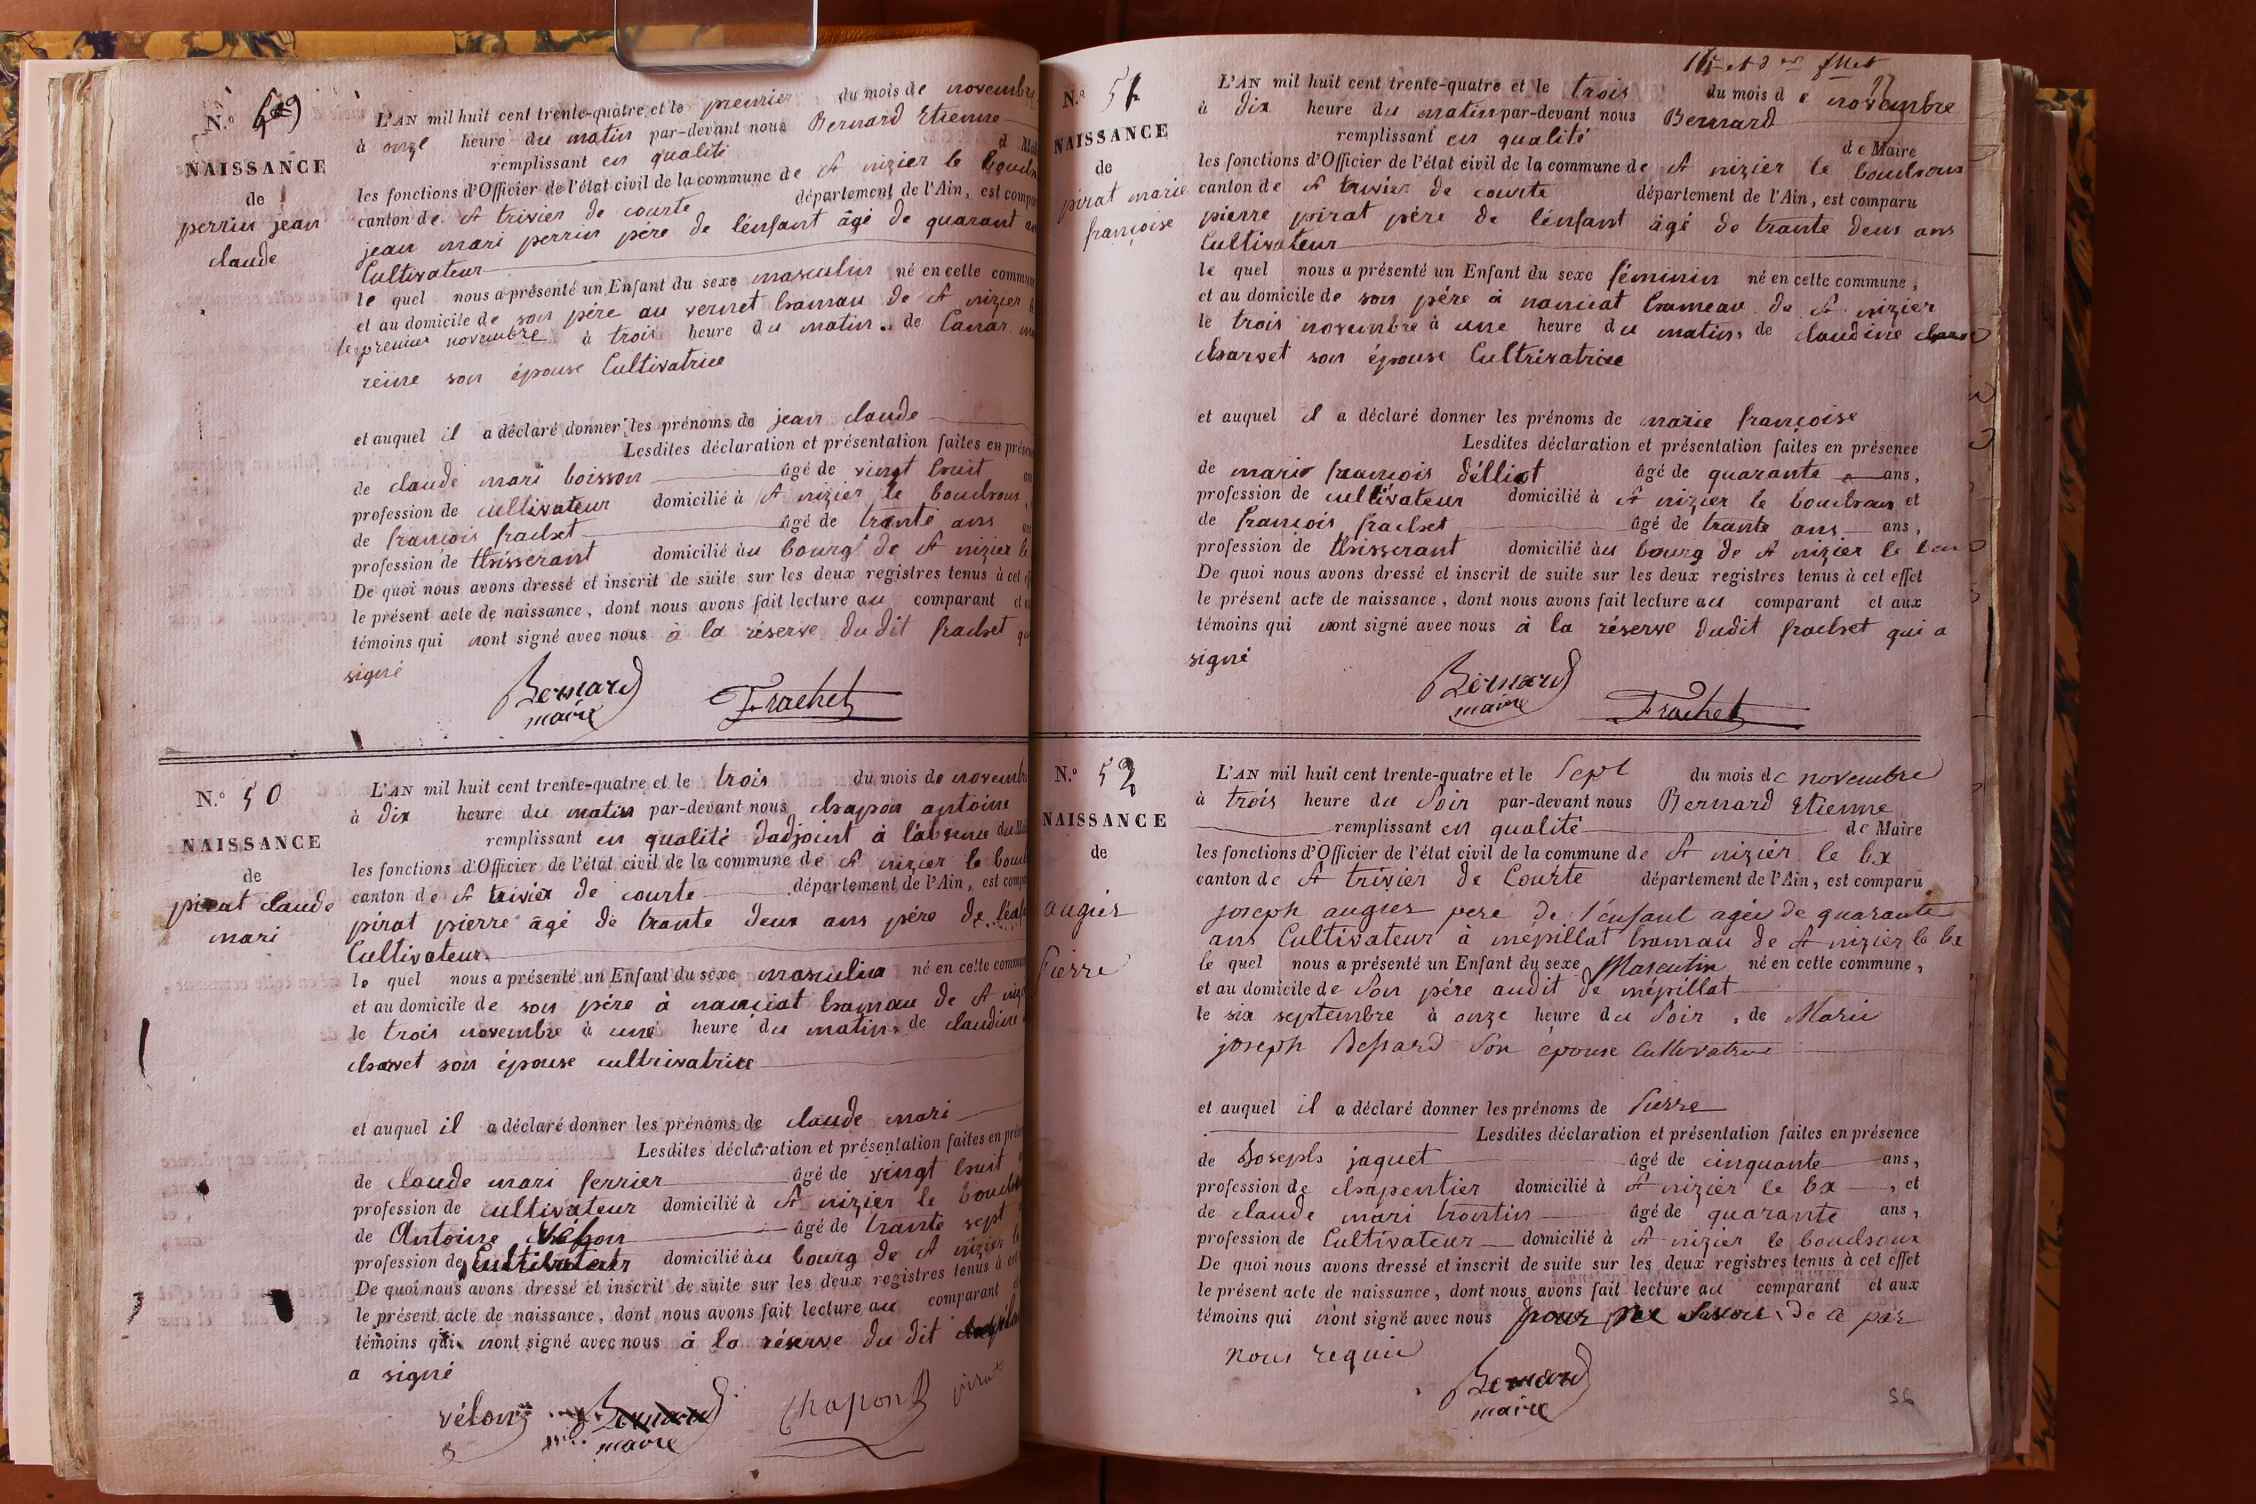 N.° 49
NAISSANCE
de
perrin jean
claude
L'AN mil huit cent trente-quatre et le premier du mois de novembre
à onze heure du matin par-devant nous Bernard Etienne
remplissant en qualité d
les fonctions d'Officier de l'état civil de la commune de St nizier le
canton de St trivier de courte département de l'Ain, est
jean mari perrin père de lénfant âgé de quarant
Cultivateur
le quel nous a présenté un Enfant du sexe masculin né en cette
et au domicile de son père au vernet hamau de St nizier
le premier novembre à trois heure du matin, de
reine son épouse Cultivatrice
et auquel il a déclaré donner les prénoms de jean claude
Lesdites déclaration et présentation faites en
de claude mari boisson âgé de vingt huit
profession de cultivateur domicilié à St nizier le bouchoux
de françois frachet âgé de trante ans
profession de thisserant domicilié àu bourg de St nizier
De quoi nous avons dressé et inscrit de suite sur les deux registres tenus à cet
le présent acte de naissance, dont nous avons fait lecture au comparant
témoins qui nont signé avec nous à la réserve du dit frachet
signé
Bernard
maire
Frachet
N.° 50
NAISSANCE
de
pirat claude
mari
L'AN mil huit cent trente-quatre et le trois du mois de
à dix heure du matin par-devant nous chapon antoine
remplissant en qualité dadjoint à lábsence du
les fonctions d'Officier de l'état civil de la commune de St nizier le
canton de St trivier de courte département de l'Ain, est
pirat pierre âgé de trante deux ans père de
Cultivateur
le quel nous a présenté un Enfant du sexe masculin né en cette
et au domicile de son père à nanciat hamau de St
le trois novembre à une heure du matin, de claudine
charvet son épouse cultrivatrice
et auquel il a déclaré donner les prénoms de claude mari
Lesdites déclaration et présentation faites en
de claude mari ferrier âgé de vingt huit
profession de cultivateur domicilié à St nizier le
de Antoine âgé de trante sept
profession de Cultivateur domicilié àu bourg de St nizier
De quoi nous avons dressé et inscrit de suite sur les deux registres tenus à
le présent acte de naissance, dont nous avons fait lecture au comparant
témoins qui nont signé avec nous à la réserve du dit
a signé
vélon Bernard Chapon
maire
N.° 51
NAISSANCE
de
pirat marie
françoise
L'AN mil huit cent trente-quatre et le trois du mois de novembre
à dix heure du matin par-devant nous Bernard
remplissant en qualité de Maire
les fonctions d'Officier de l'état civil de la commune de St nizier le bouchoux
canton de St trivier de courte département de l'Ain, est comparu
pierre pirat père de lénfant âgé de trante deux ans
Cultivateur
le quel nous a présenté un Enfant du sexe féminin né en cette commune,
et au domicile de son père à nanciat hameau de St nizier
le trois novembre à une heure du matin, de claudine
charvet son épouse Cultrivatrice
et auquel il a déclaré donner les prénoms de marie françoise
Lesdites déclaration et présentation faites en présence
de marie françois délliot âgé de quarante ans,
profession de cultivateur domicilié à St nizier le bouchoux et
de françois frachet âgé de trante ans ans,
profession de thisserant domicilié àu bourg de St nizier le
De quoi nous avons dressé et inscrit de suite sur les deux registres tenus à cet effet
le présent acte de naissance, dont nous avons fait lecture au comparant et aux
témoins qui nont signé avec nous à la réserve dudit frachet qui a
signé
Bernard
maire
Frachet
N.° 52
NAISSANCE
de
augier
Pierre
L'AN mil huit cent trente-quatre et le Sept du mois de novembre
à trois heure du Soir par-devant nous Bernard Etienne
remplissant en qualité de Maire
les fonctions d'Officier de l'état civil de la commune de St nizier le bx
canton de St trivier de Courte département de l'Ain, est comparu
joseph augier père de l'énfant agée de quarante
ans Cultivateur à mépillat hamau de St nizier le bx
le quel nous a présenté un Enfant du sexe Masculin né en cette commune,
et au domicile de Son père audit de mépillat
le six septembre à onze heure du Soir, de Marie
joseph Bessard Son épouse Cultivatrice
et auquel il a déclaré donner les prénoms de Pierre
Lesdites déclaration et présentation faites en présence
de Joseph jaquet âgé de cinquante ans,
profession de chapentier domicilié à St nizier le bx, et
de claude mari trontin âgé de quarante ans,
profession de Cultivateur domicilié à St nizier le bouchoux
De quoi nous avons dressé et inscrit de suite sur les deux registres tenus à cet effet
le présent acte de naissance, dont nous avons fait lecture au comparant et aux
témoins qui n'ont signé avec nous pour ne Savoir de ce par
nous requis
Bernard
maire